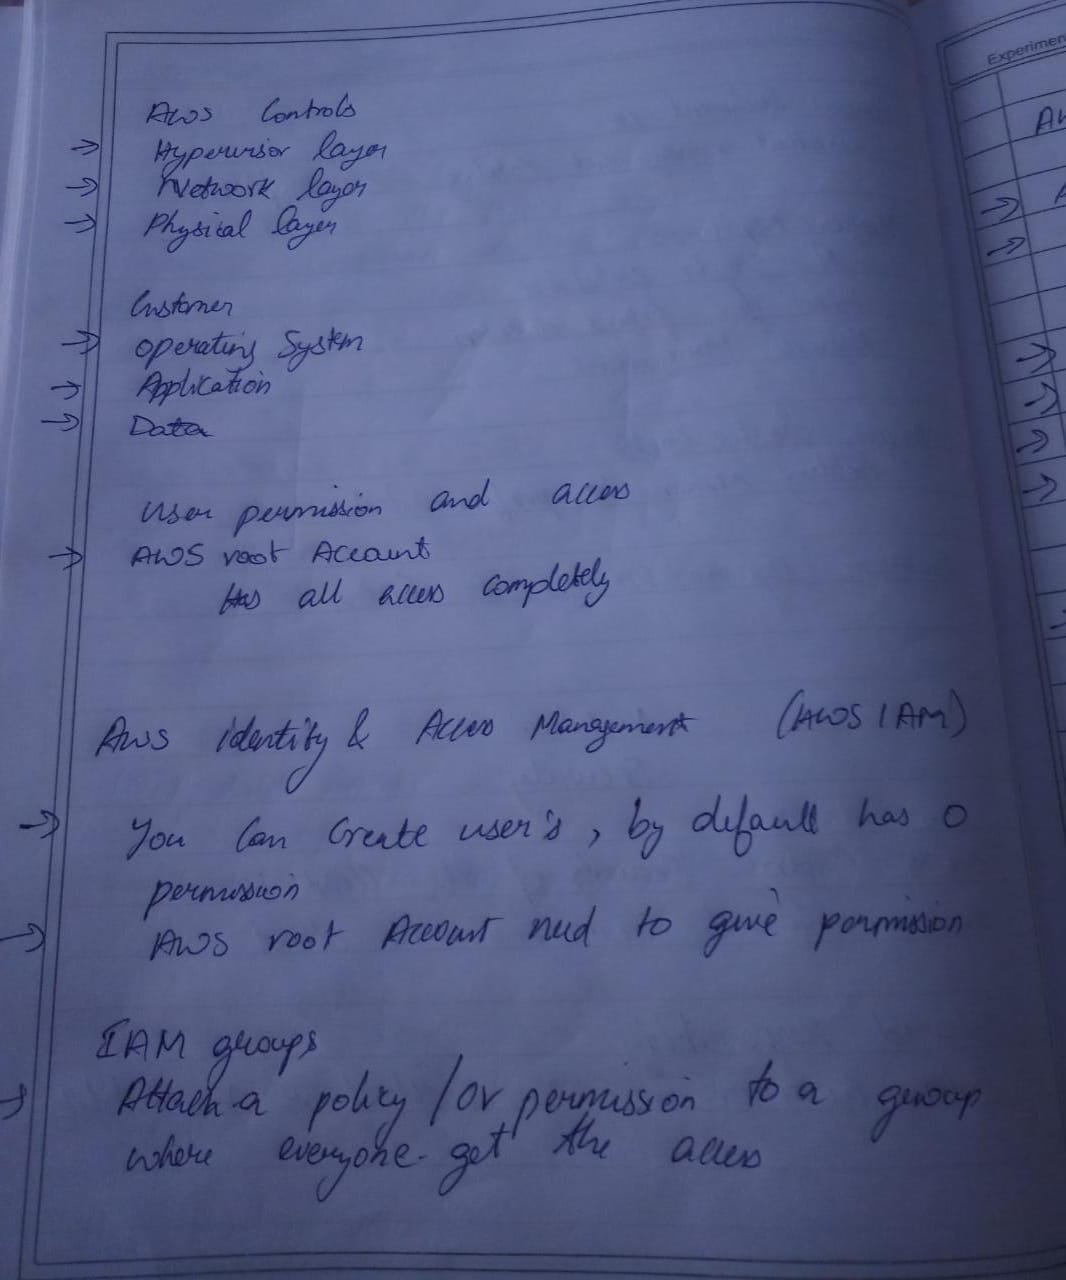 AWS Controls
→ Hypervisor layer
→ Network layer
→ Physical layer
Customer
→ Operating System
→ Application
→ Data
User permission and access
→ AWS root Account
Has all access completely
Aws identity & Access Management (AWS IAM)
→ You Can Create user's, by default has 0
permission
→ AWS root Account need to give permission
IAM groups
→ Attach a policy / or permission to a group
where everyone get the access
Experimen
→
→
→
→
→
→